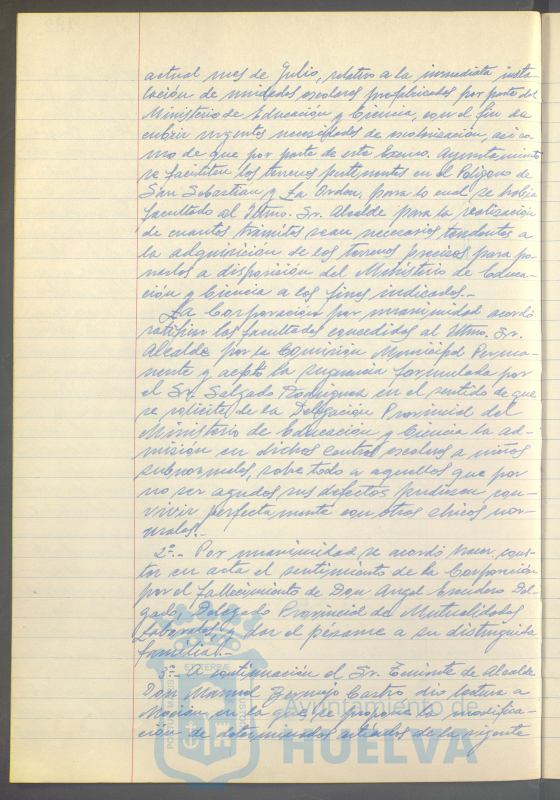 actual mes de Julio, relativo a la inmediata insta-
lación de unidades escolares prefabricadas por parte del
Ministerio de Educación y Ciencia, con el fin de
cubrir urgentes necesidades de escolarización, así co-
mo de que por parte de este Excmo. Ayuntamiento
se faciliten los terrenos pertinentes en el Polígono de
San Sebastián y La Orden, para lo cual se había
facultado al Iltmo. Sr. Alcalde para la realización
de cuantos trámites sean necesarios tendentes a
la adquisición de los terrenos precisos para po-
nerlos a disposición del Ministerio de Educa-
ción y Ciencia a los fines indicados.-
La Corporación por unanimidad acordó
ratificar las facultades concedidas al Iltmo. Sr.
Alcalde por la Comisión Municipal Perma-
nente y aceptó la sugerencia formulada por
el Sr. Salgado Rodríguez en el sentido de que
se solicite de la Delegación Provincial del
Ministerio de Educación y Ciencia la ad-
misión en dichos centros escolares a niños
subnormales, sobre todo a aquellos que por
no ser agudos sus defectos pudiesen con-
vivir perfectamente con otros chicos nor-
males.-
2º.- Por unanimidad se acordó hacer cons-
tar en acta el sentimiento de la Corporación
por el fallecimiento de Don Angel Del-
gado, Delegado Provincial de Mutualidades
Laborales y dar el pésame a su distinguida
familia.-
3º.- A continuación el Sr. Teniente de Alcalde
Don Manuel Bermejo Castro dio lectura a
Moción en la que se propone la modifica-
ción de determinados artículos de la vigente
Ayuntamiento de
HUELVA